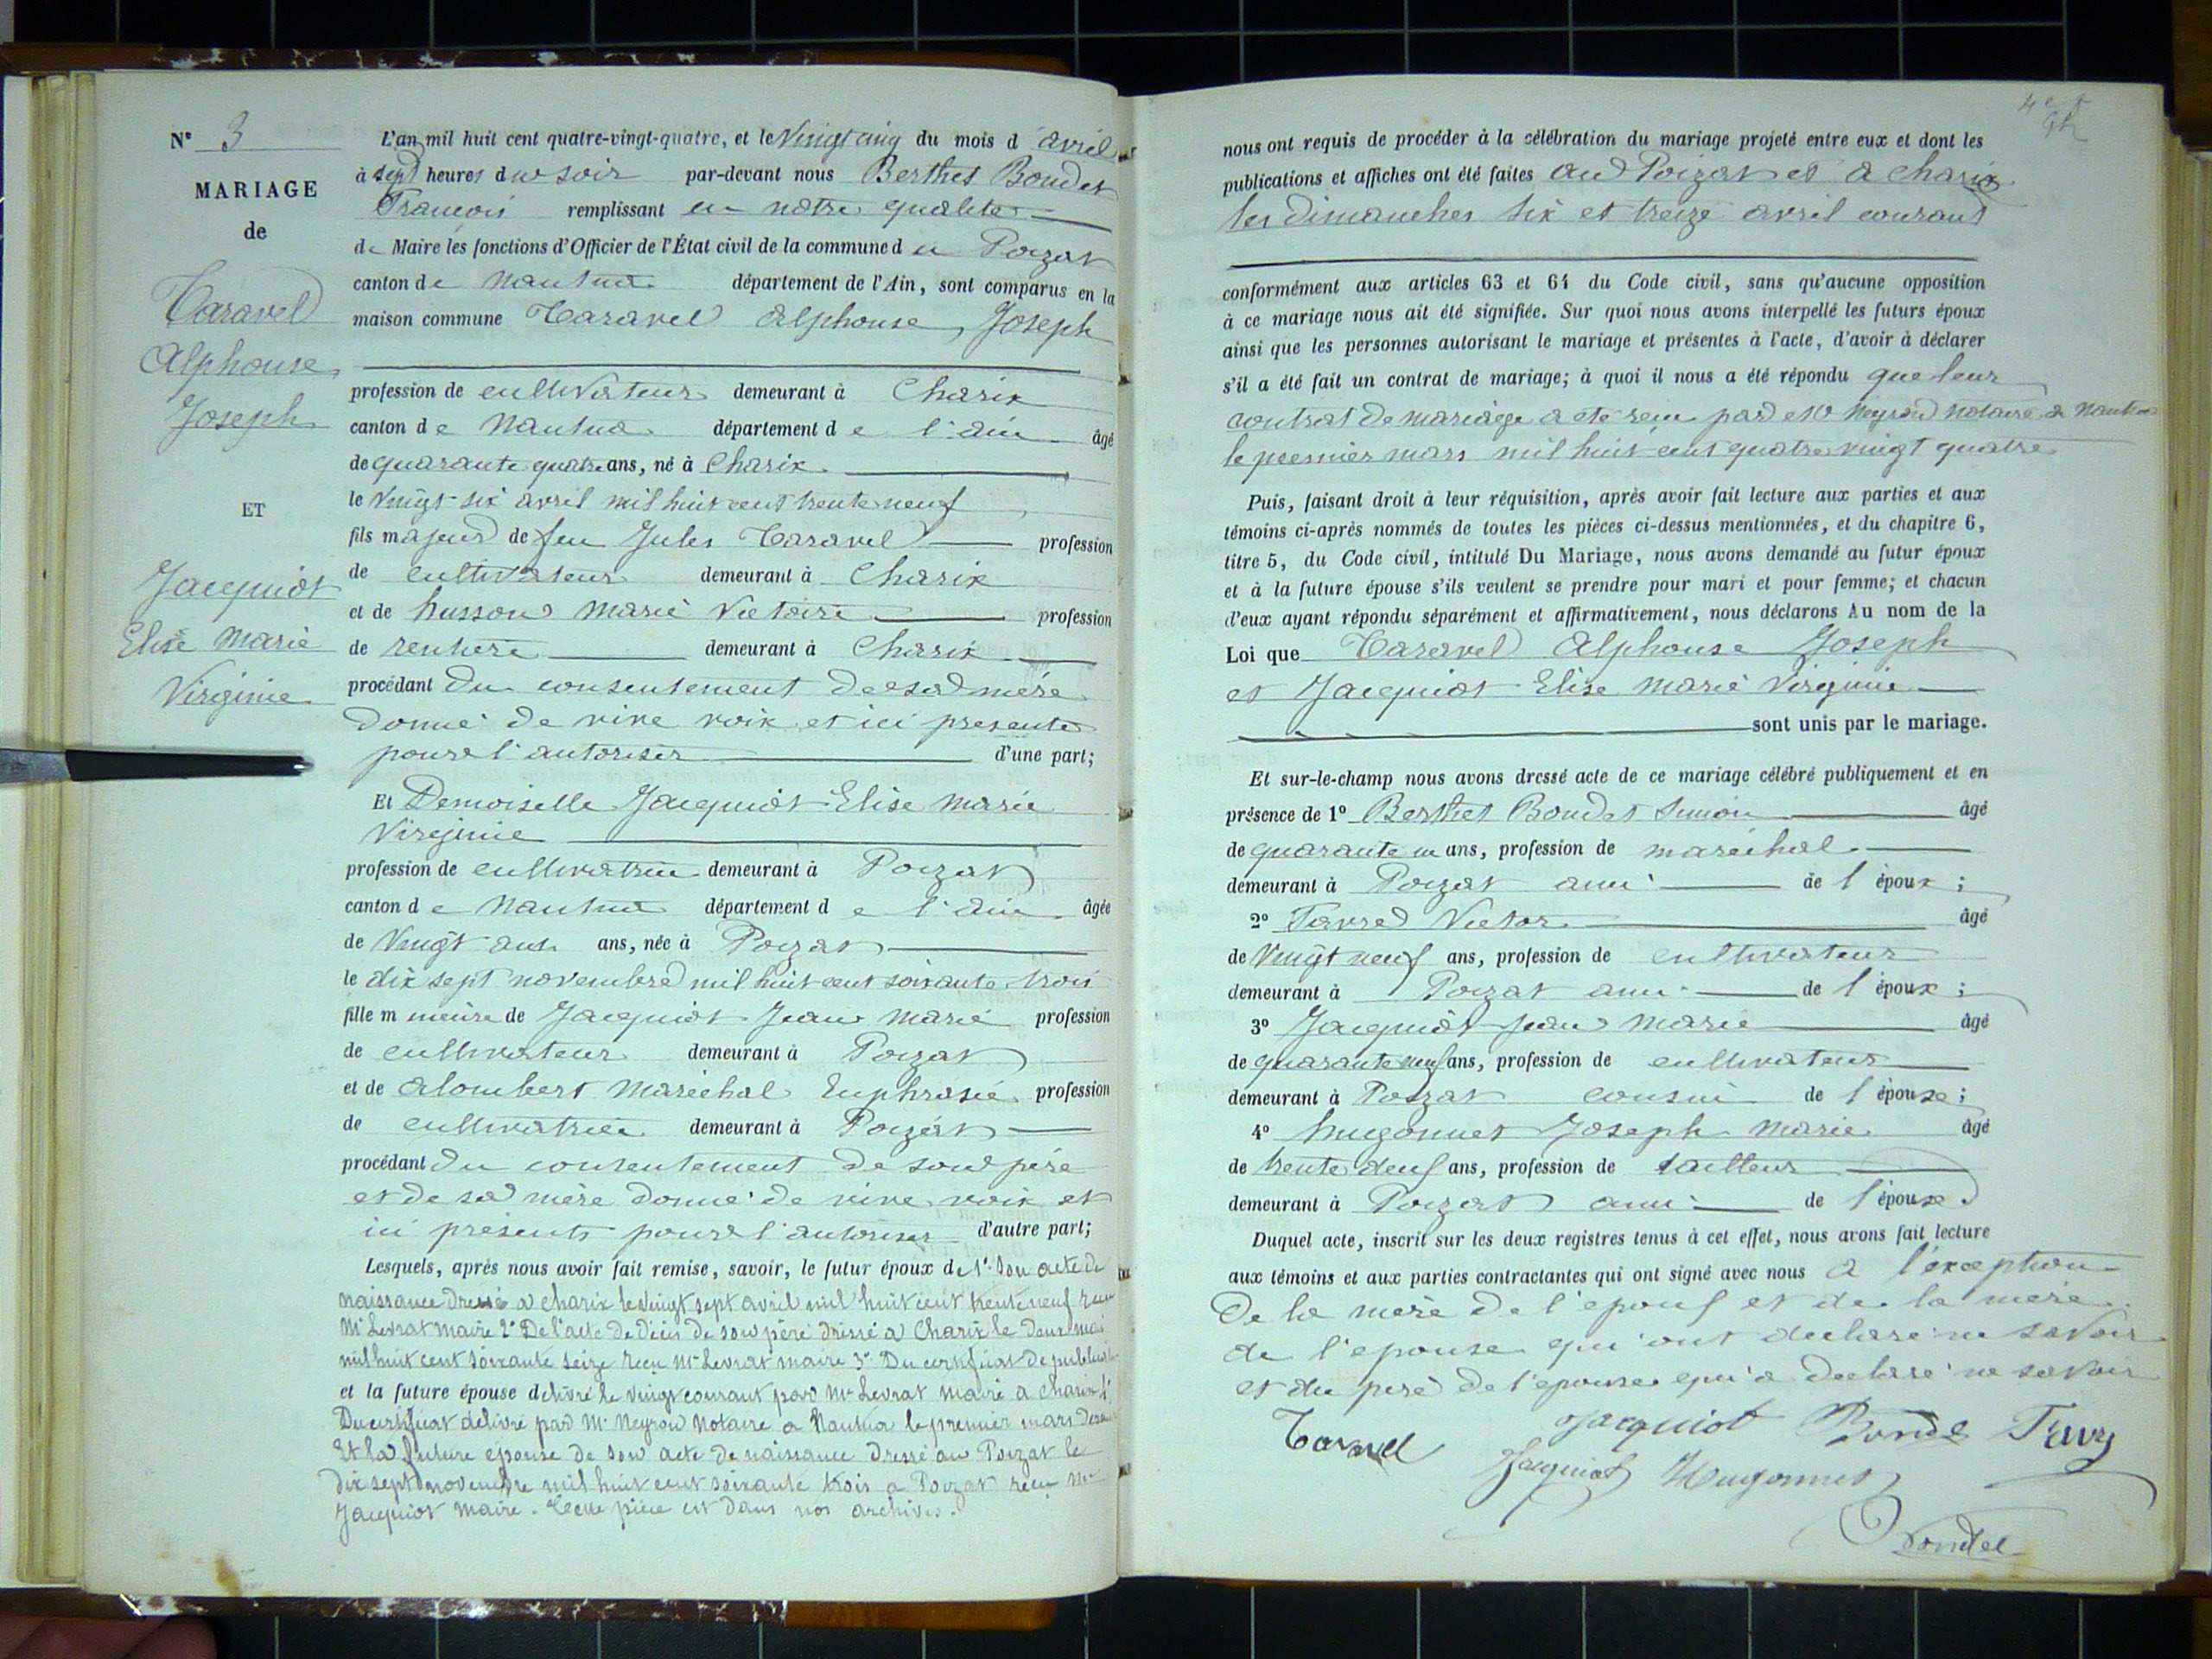 N° 3
MARIAGE
de
Taravel
Alphonse
Joseph
ET
Jacquiot
Elise Marie
Virginie
L'an mil huit cent quatre-vingt-quatre, et le Vingt cinq du mois d'avril
à sept heures du soir par-devant nous Berthet Bondet
François remplissant en notre qualité
de Maire les fonctions d'Officier de l'État civil de la commune du Poizat
canton de Nantua département de l'Ain, sont comparus en la
maison commune Taravel Alphonse, Joseph
profession de cultivateur demeurant à Charix
canton de Nantua département de l'ain âgé
de quarante quatre ans, né à Charix
le vingt-six avril mil huit cent trente neuf
fils majeur de feu Jules Taravel profession
de cultivateur demeurant à Charix
et de husson Marie Victoire profession
de rentière demeurant à Charix
procédant du consentement de sa mère
donné de vive voix et ici présente
pour l'autoriser d'une part;
Et Demoiselle Jacquiot Elise Marie
Virginie
profession de cultivatrice demeurant à Poizat
canton de Nantua département de l'ain âgée
de Vingt ans ans, née à Poizat
le dix sept novembre mil huit cent soixante trois
fille mineure de Jacquiot Jean Marie profession
de cultivateur demeurant à Poizat
et de Alombert Maréchal Euphrasie profession
de cultivatrice demeurant à Poizat
procédant du consentement de son père
et de sa mère donné de vive voix et
ici présents pour l'autoriser d'autre part;
Lesquels, après nous avoir fait remise, savoir, le futur époux de 1° Son acte de
naissance dressé a Charix le vingt sept avril mil huit cent trente neuf reçu
Mr Levrat maire 2° De l'acte de décès de son père dressé a Charix le deux mai
mil huit cent soixante seize reçu Mr Levrat maire 3° Du certificat de
et la future épouse délivré le vingt courant par Mr Levrat maire a Charix
Du certificat délivré par Mr Neyron Notaire a Nantua le premier mars
Et la future épouse de son acte de naissance dressé au Poizat le
dix sept novembre mil huit cent soixante trois a Poizat reçu Mr
Jacquiot Maire. Cette pièce est dans nos archives.
nous ont requis de procéder à la célébration du mariage projeté entre eux et dont les
publications et affiches ont été faites au Poizat et à Charix
les dimanches six et treize avril courant
conformément aux articles 63 et 64 du Code civil, sans qu'aucune opposition
à ce mariage nous ait été signifiée. Sur quoi nous avons interpellé les futurs époux
ainsi que les personnes autorisant le mariage et présentes à l'acte, d'avoir à déclarer
s'il a été fait un contrat de mariage; à quoi il nous a été répondu que leur
contrat de mariage a été reçu par Neyron notaire à Nantua
le premier mars mil huit cent quatre vingt quatre
Puis, faisant droit à leur réquisition, après avoir fait lecture aux parties et aux
témoins ci-après nommés de toutes les pièces ci-dessus mentionnées, et du chapitre 6,
titre 5, du Code civil, intitulé Du Mariage, nous avons demandé au futur époux
et à la future épouse s'ils veulent se prendre pour mari et pour femme; et chacun
d'eux ayant répondu séparément et affirmativement, nous déclarons Au nom de la
Loi que Taravel Alphonse Joseph
et Jacquiot Elise Marie Virginie
sont unis par le mariage.
Et sur-le-champ nous avons dressé acte de ce mariage célébré publiquement et en
présence de 1° Berthet Bondet Simon âgé
de quarante un ans, profession de maréchal
demeurant à Poizat ami de l'époux;
2° Victor âgé
de Vingt neuf ans, profession de cultivateur
demeurant à Poizat ami de l'époux;
3° Jacquiot Jean Marie âgé
de quarante neuf ans, profession de cultivateur
demeurant à Poizat cousin de l'épouse;
4° hugonnet Joseph Marie âgé
de trente deux ans, profession de tailleur
demeurant à Poizat ami de l'épouse
Duquel acte, inscrit sur les deux registres tenus à cet effet, nous avons fait lecture
aux témoins et aux parties contractantes qui ont signé avec nous à l'exception
De la mère de l'époux et de la mère
de l'épouse qui ont déclaré ne savoir
et du père de l'épouse qui a déclaré ne savoir
Taravel Jacquiot
Jacquiot Hugonnet
Bondet